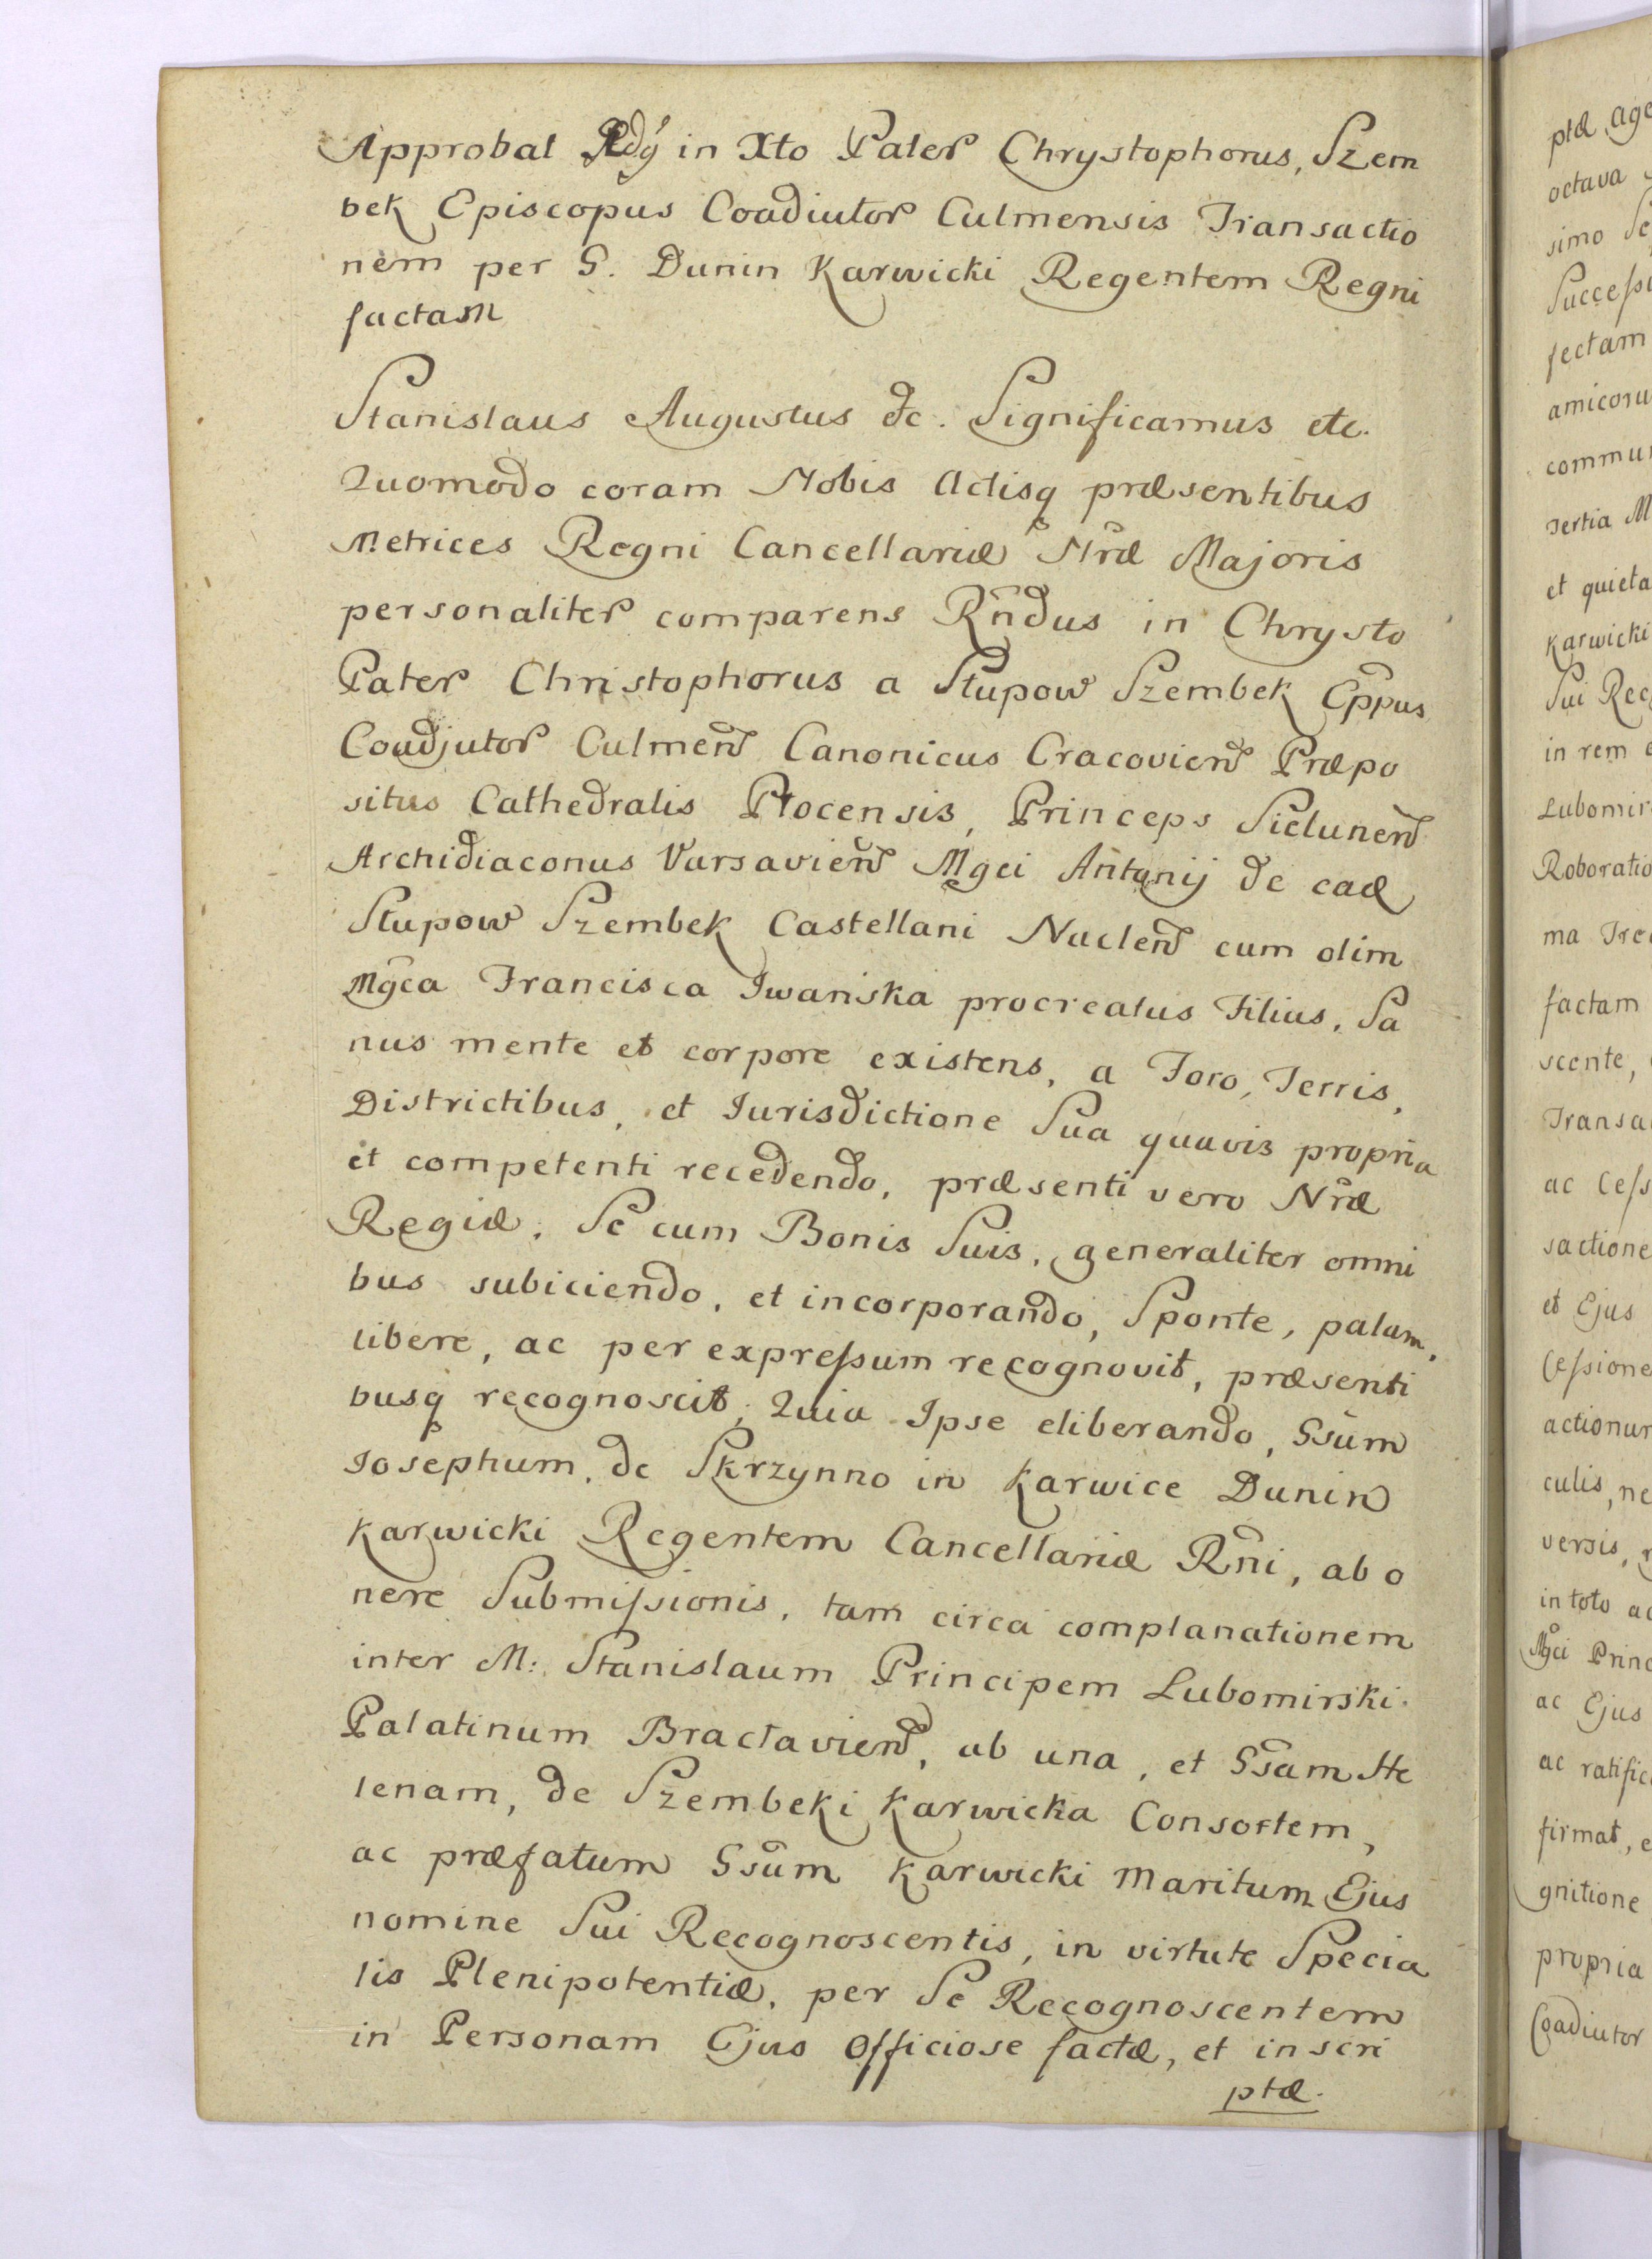 Approbat Rdꝰ in Xto Pater Chrystophorus, Szem
bek Episcopus Coadiutor Culmensis Transactio
nem per G. Dunin Karwicki Regentem Regni
factam
Stanislaus Augustus &c. Significamus etc.
Quomodo coram Nobis Actisq præsentibus
Metrices Regni Cancellariæ Nræ Majoris
personaliter comparens Rndus in Chrysto
Pater Christophorus a Słupow Szembek Eppus
Coadjutor Culmen Canonicus Cracovien Præpo
situs Cathedralis Płocensis, Princeps Sielunen
Archidiaconus Varsavien Mgci Antonij de ead
Słupow Szembek Castellani Naclen cum olim
Mgca Francisca Iwańska procreatus Filius, Sa
nus mente et corpore existens, a Foro, Terris,
Districtibus, et Iurisdictione Sua quavis propria
et competenti recedendo, præsenti vero Nræ
Regiæ, Se cum Bonis Suis, generaliter omni
bus subiiciendo, et incorporando, Sponte, palam,
libere, ac per expressum recognovit, præsenti
busq recognoscit; Quia Ipse eliberando, Gsum
Iosephum, de Skrzynno in Karwice Dunin
Karwicki Regentem Cancellariæ Rni, ab o
nere Submissionis, tam circa complanationem
inter M: Stanislaum Principem Lubomirski
Palatinum Bractavien, ab una, et Gsam He
lenam, de Szembeki Karwicka Consortem,
ac præfatum Gsum Karwicki Maritum Ejus
nomine Sui Recognoscentis, in virtute Specia
lis Plenipotentiæ, per Se Recognoscentem
in Personam Ejus Officiose factæ, et inscri
ptæ.
ptæ
octava
simo
fectam
tertia M
et quieta
Karwicki
in rem
factam
scente,
ac
sactione
et Ejus
culis, ne
versis,
in toto
Mgci Princ
ac Ejus
firmat,
gnitione
propria
Coadiutor